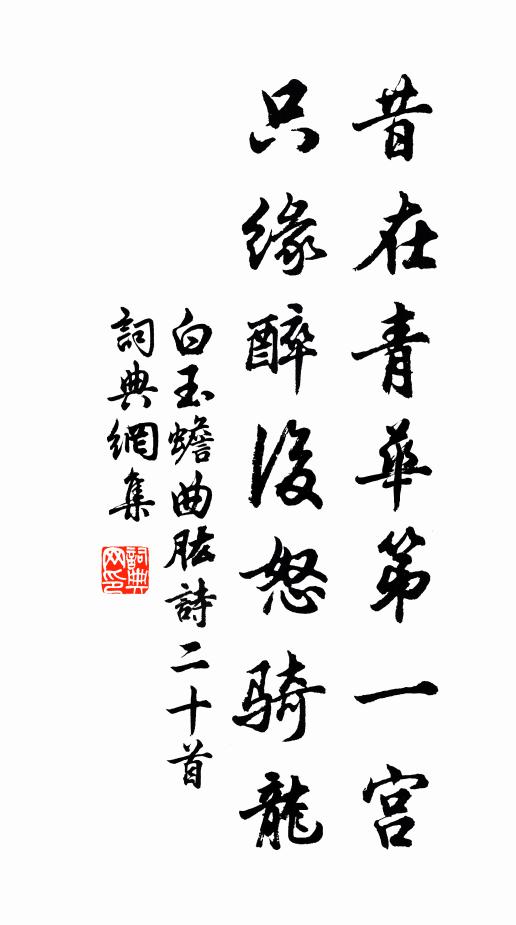 昔在青華第一宫
只緣醉後怒騎龍
白玉蟾曲肱詩二十首
詞典網集
詞典网印